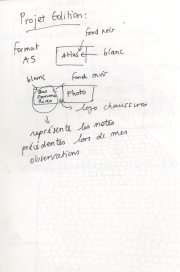 Projet Edition:
fond noir
format
A5
Atlas
blanc
blanc
fond noir
Photo
logo chaussures
représente les notes
précédentes lors de mes
observations